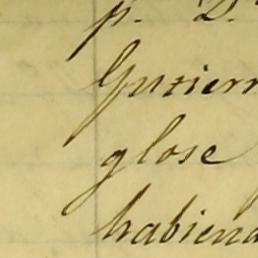 p. D.
Guzierr
glose
habiend